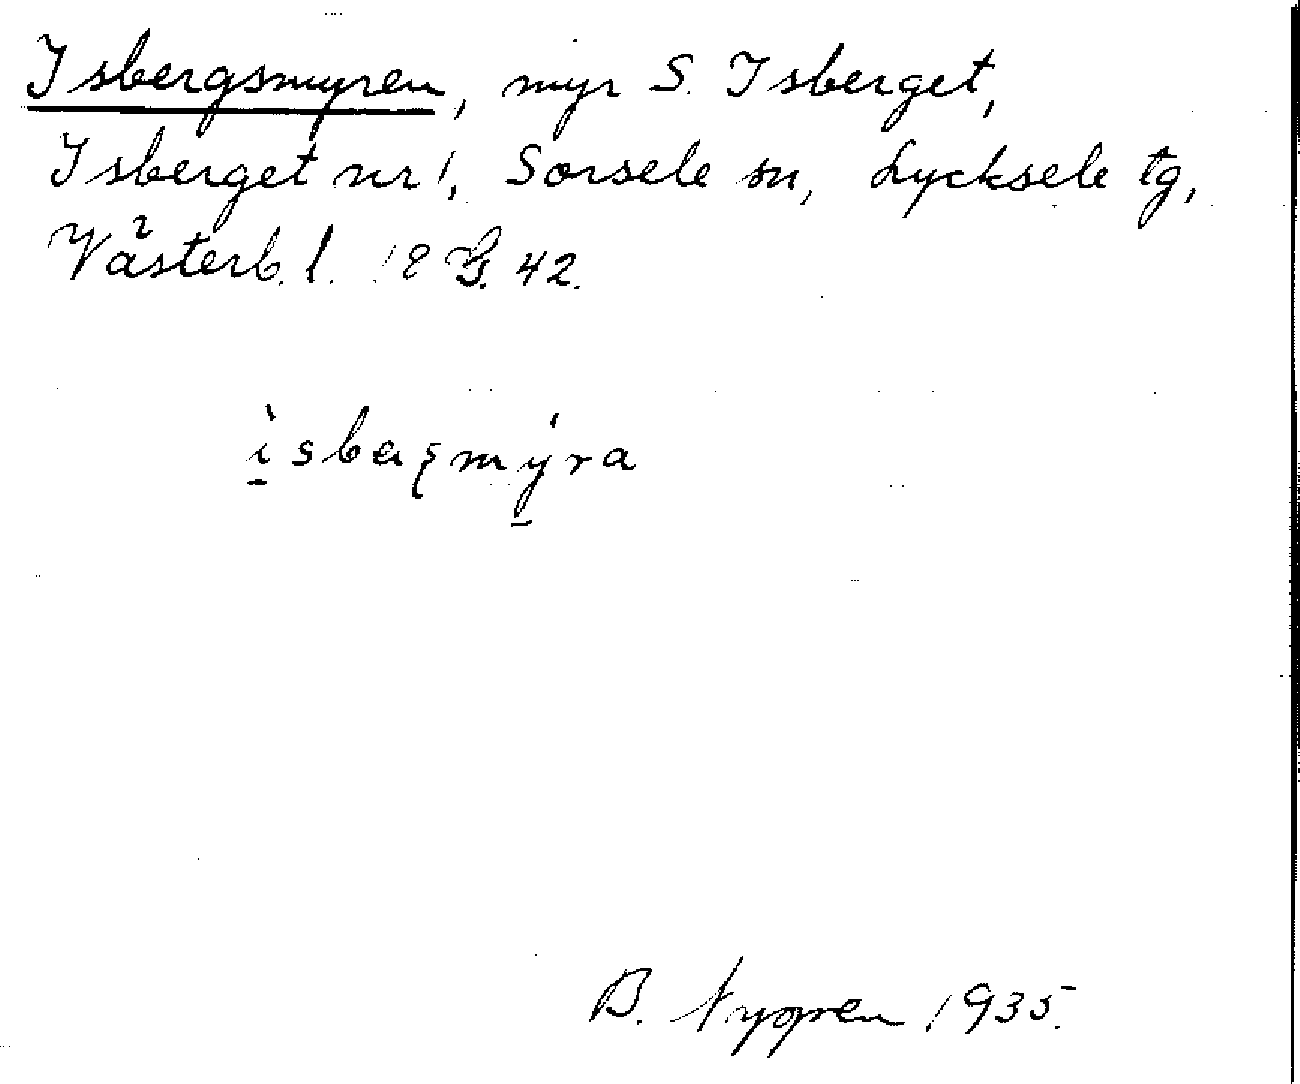 Isbergsmyren, myr S. Isberget,
Isberget nr 1, Sorsele sn, Lycksele tg,
Västerb. l. 18 G. 42.
B. Nygren 1935.